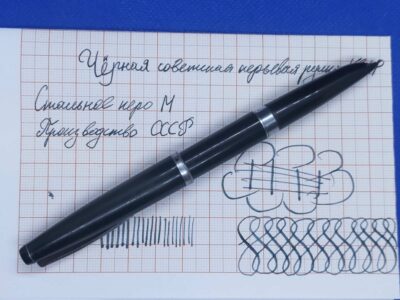 Чёрная советская перьевая ручка
Стальное перо М
Производство СССР